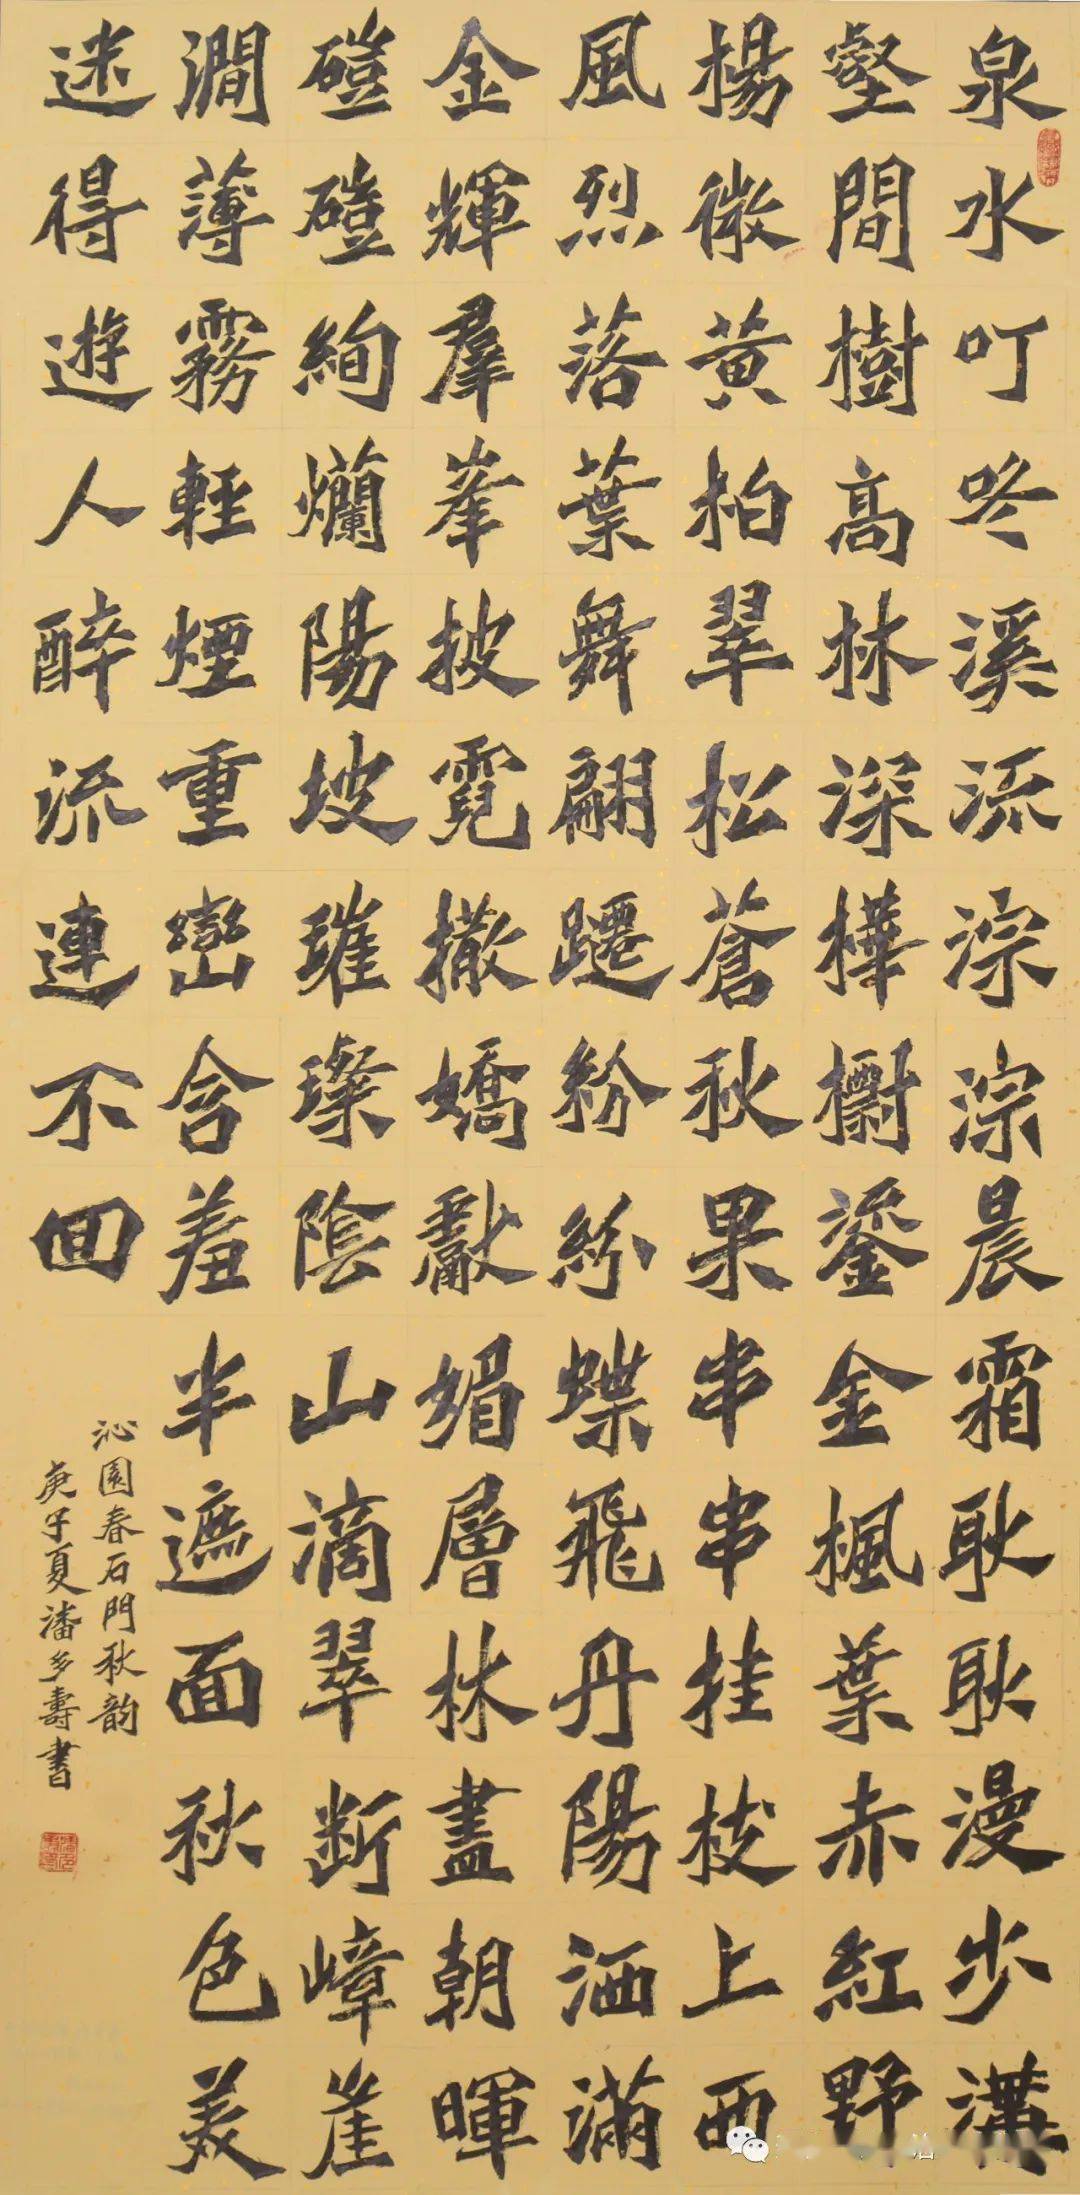 泉水叮咚溪流淙淙晨霜耿耿漫步溝
壑間樹高林深樺櫥鎏金楓葉赤紅野
楊微黃柏翠松蒼秋果串串挂枝上西
風烈落葉舞翩躚紛紛蝶飛丹陽洒滿
金輝羣峯披霓撒嬌獻媚層林盡朝暉
磑磑絢爛陽坡璀璨陰山滴翠斷嶂崖
澗薄霧輕煙重巒含羞半遮面秋色美
迷得遊人醉流連不回
沁園春石門秋韵
庚子夏潘多壽書